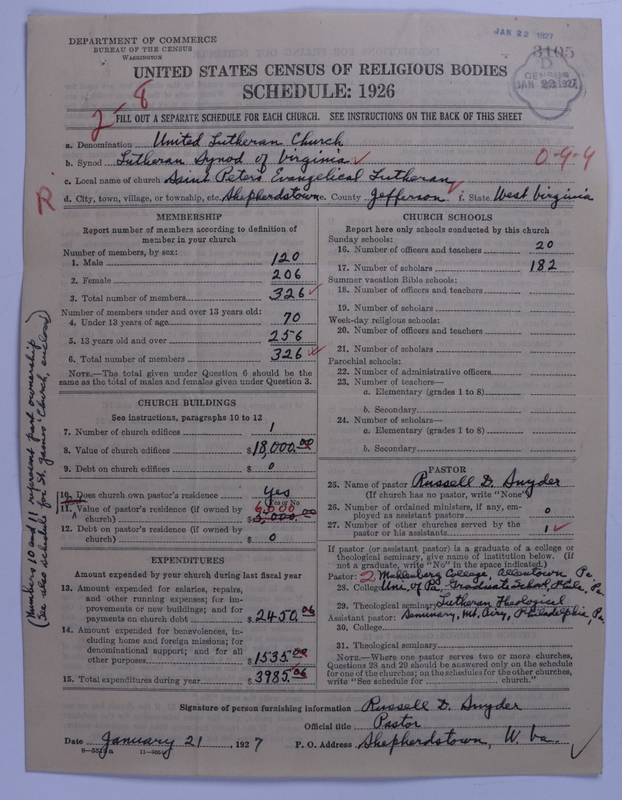 JAN 22 1927
DEPARTMENT OF COMMERCE
BUREAU OF THE CENSUS
WASHINGTON
3105
B
CENSUS
JAN 22 1927
UNITED STATES CENSUS OF RELIGIOUS BODIES
SCHEDULE: 1926
2-8
FILL OUT A SEPARATE SCHEDULE FOR EACH CHURCH. SEE INSTRUCTIONS ON THE BACK OF THIS SHEET
a. Denomination United Lutheran Church
b. Synod Lutheran Synod of Virginia
0-9-4
c. Local name of church Saint Peters Evangelical Lutheran
R
d. City, town, village, or township, etc. Shepherdstown e. County Jefferson f. State West Virginia
MEMBERSHIP
Report number of members according to definition of
member in your church
Number of members, by sex:
1. Male 120
2. Female 206
3. Total number of members 326
Number of members under and over 13 years old:
4. Under 13 years of age 70
5. 13 years old and over 256
6. Total number of members 326
NOTE.—The total given under Question 6 should be the
same as the total of males and females given under Question 3.
CHURCH BUILDINGS
See instructions, paragraphs 10 to 12
7. Number of church edifices 1
8. Value of church edifices $18,000.00
9. Debt on church edifices $ 0
10. Does church own pastor's residence yes
(Yes or No)
6,000
11. Value of pastor's residence (if owned by
church) $ 3,000.00
12. Debt on pastor's residence (if owned by
church) $ 0
(Numbers 10 and 11 represent part ownership
(See also schedule for St. James Church, enclosed)
EXPENDITURES
Amount expended by your church during last fiscal year
13. Amount expended for salaries, repairs,
and other running expenses; for im-
provements or new buildings; and for
payments on church debt $2450.00
14. Amount expended for benevolences, in-
cluding home and foreign missions; for
denominational support; and for all
other purposes $1535.00
15. Total expenditures during year $3985.00
CHURCH SCHOOLS
Report here only schools conducted by this church
Sunday schools:
16. Number of officers and teachers 20
17. Number of scholars 182
Summer vacation Bible schools:
18. Number of officers and teachers
19. Number of scholars
Week-day religious schools:
20. Number of officers and teachers
21. Number of scholars
Parochial schools:
22. Number of administrative officers
23. Number of teachers—
a. Elementary (grades 1 to 8)
b. Secondary
24. Number of scholars—
a. Elementary (grades 1 to 8)
b. Secondary
PASTOR
25. Name of pastor Russell D. Snyder
(If church has no pastor, write "None")
26. Number of ordained ministers, if any, em-
ployed as assistant pastors 0
27. Number of other churches served by the
pastor or his assistants 1
If pastor (or assistant pastor) is a graduate of a college or
theological seminary, give name of institution below. (If
not a graduate, write "No" in the space indicated.)
Pastor: 2 Muhlenberg College, Allentown Pa
28. College Uni. of Pa. Graduate School, Phila. Pa
29. Theological seminary Lutheran Theological
Assistant pastor: Seminary, Mt. Airy, Philadelphia, Pa.
30. College
31. Theological seminary
NOTE.—Where one pastor serves two or more churches,
Questions 28 and 29 should be answered only on the schedule
for one of the churches; on the schedules for the other churches,
write "See schedule for church."
Signature of person furnishing information Russell D. Snyder
Official title Pastor
Date January 21, 1927 P. O. Address Shepherdstown, W. Va.